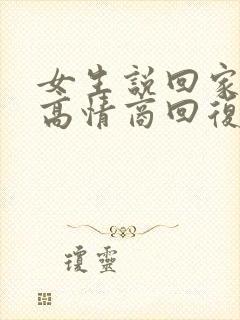 女生說回家
高情商回復
瓊靈